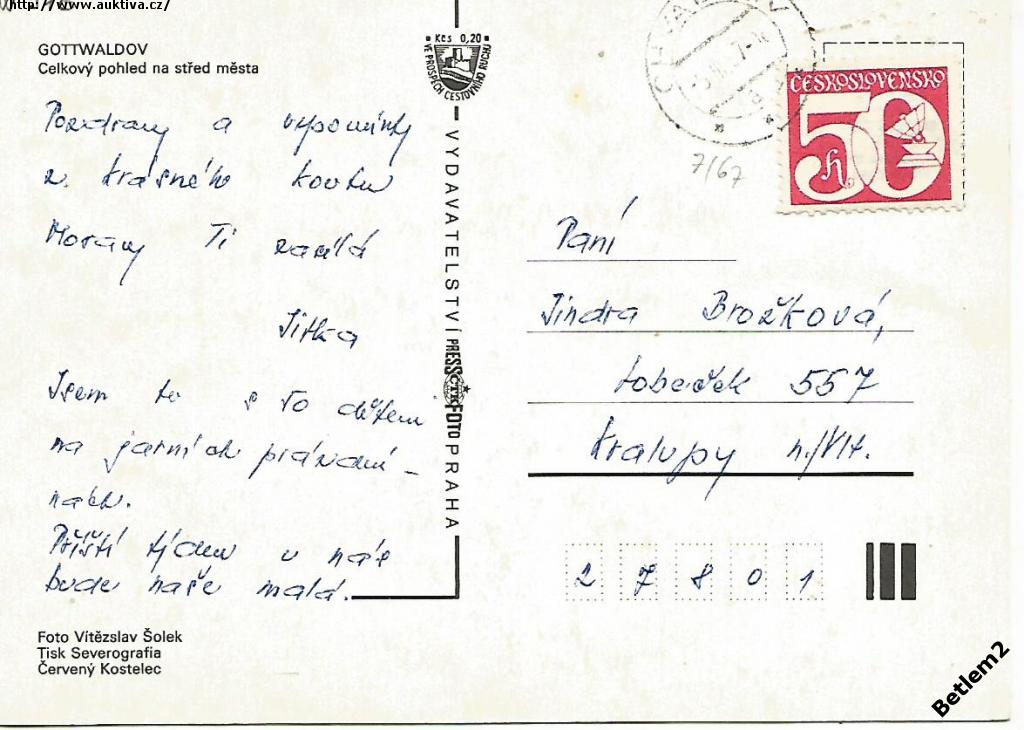 http://www.auktiva.cz/
GOTTWALDOV
Celkový pohled na střed města
Pozdravy a vzpomínky
z krásného koutu
Moravy Ti zasílá
Jitka
Jsem tu s 50 dětmi
na jarních prázdni-
nách.
Příští týden u nás
bude naše malá.
Foto Vítězslav Šolek
Tisk Severografia
Červený Kostelec
Kčs 0,20
VE PROSPĚCH CESTOVNÍHO RUCHU
VYDAVATELSTVÍ PRESSFOTO PRAHA
ČTK
ČESKOSLOVENSKO
50
h
7/67
Paní
Jindra Brožková,
Lobeček 557
Kralupy n./Vlt.
27801
Betlem2